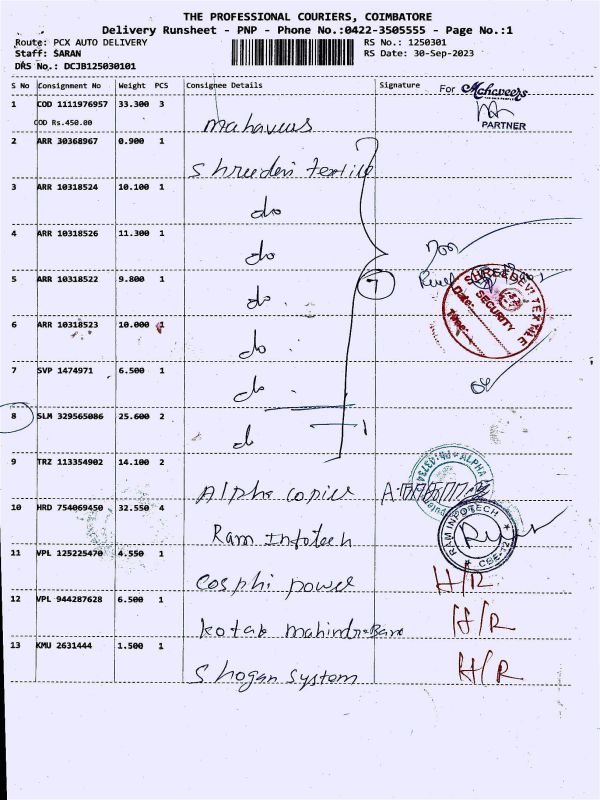 THE PROFESSIONAL COURIERS, COIMBATORE
Delivery Runsheet - PNP - Phone No.:0422-3505555 - Page No.:1
Route: PCX AUTO DELIVERY RS No.: 1250301
Staff: SARAN RS Date: 30-Sep-2023
DRS No.: DCJB125030101
S No Consignment No Weight PCS Consignee Details Signature
For Mahaveers
PARTNER
1 COD 1111976957 33.300 3
COD Rs.450.00
mahaveers
2 ARR 30368967 0.900 1
Shreedevi textile
3 ARR 10318524 10.100 1
do
4 ARR 10318526 11.300 1
do
5 ARR 10318522 9.800 1
do
7
SHREEDEVI TEXTILE
SECURITY
Date:
Time:
6 ARR 10318523 10.000 1
do
7 SVP 1474971 6.500 1
do
8 SLM 329565086 25.600 2
do
9 TRZ 113354902 14.100 2
Alpha copier
ALPHA
10 HRD 754069450 32.550 4
Ram Infotech
RAM INFOTECH
CBE-12
11 VPL 125225470 4.550 1
Cosphi power H/R
12 VPL 944287628 6.500 1
kotak mahindra Bank H/R
13 KMU 2631444 1.500 1
Shogan System H/R